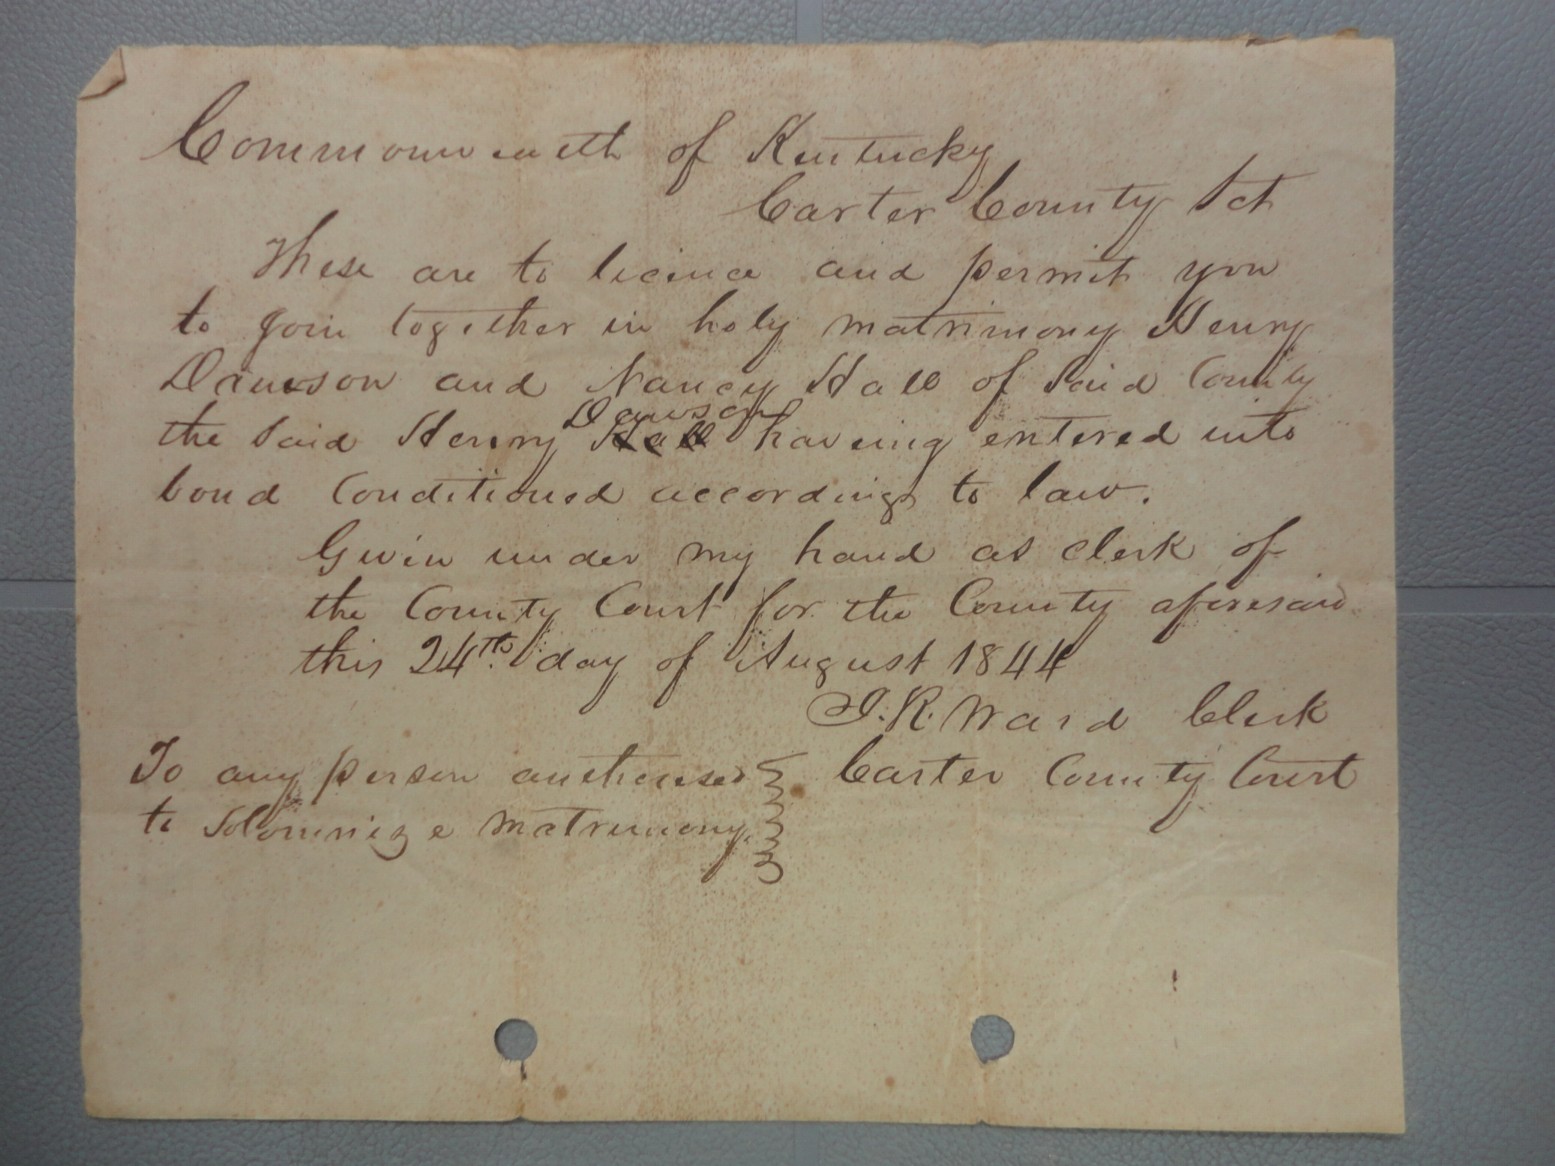 Commonwealth of Kentucky
Carter County Sct
These are to licence and permit you
to join together in holy matrimony Henry
Dawson and Nancy Hall of Said County
Dawson
the Said Henry Hall having entered into
bond Conditioned according to law.
Given under my hand as clerk of
the County Court for the County aforesaid
this 24th day of August 1844
J. R. Ward Clerk
To any person authorised Carter County Court
to Solomnize matrimony.